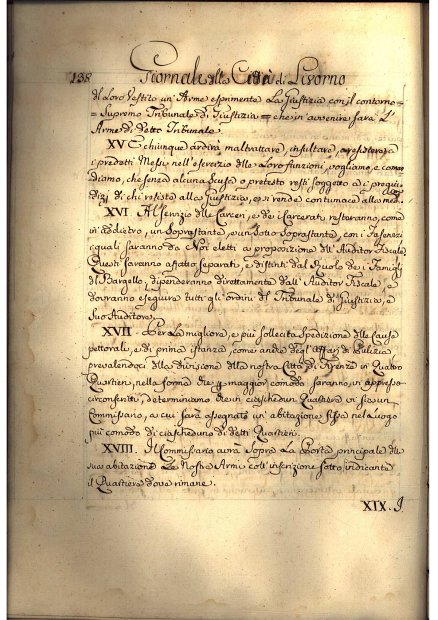 138 Giornale della Città di Livorno
del Loro Vestito un' Arme esprimente La Giustizia con il contorno =
= Supremo Tribunale di Giustizia = che in avvenire sarà L'
Arme di detto Tribunale.
XV E chiunque ardirà maltrattare, insultare, o resistere a
i predetti Messi nell'esercizio delle Loro funzioni, vogliamo, e coman
diamo, che senza alcuna scusa o pretesto resti soggetto a i pregiu
dizj di chi resiste alla Giustizia, e si rende contumace alla med.
XVI. Al servizio delle Carceri, e dei Carcerati resteranno, come
in Addietro, un Soprastante, e un Sotto Soprastante, con i
quali saranno da Noi eletti a proposizione dell' Auditor Fiscale
Questi saranno affatto separati, e distinti dal Ruolo de i Famigli
di Bargello, dipenderanno direttamente dall' Auditor Fiscale, e
dovranno eseguire tutti gli ordini del Tribunale di Giustizia, e
Suo Auditore.
XVII. Per La migliore, e più sollecita Spedizione delle Cause
pettorali, e di prima istanza, come anche degl' Affari di Pulizia
prevalendoci della divisione della nostra Città di Firenze in Quattro
Quartieri, nella forma che maggior comodo saranno, in appresso
circonscritti, determiniamo che in ciascheduno Quartiere vi sia un
Commissario, a cui sarà assegnata un' abitazione fissa nel Luogo
più comodo di ciascheduno di detti Quartieri.
XVIII. Il Commissario avrà sopra La Porta principale della
sua abitazione Le Nostre Armi coll' inscrizione sotto indicante
il Quartiere dove rimane.
XIX. I